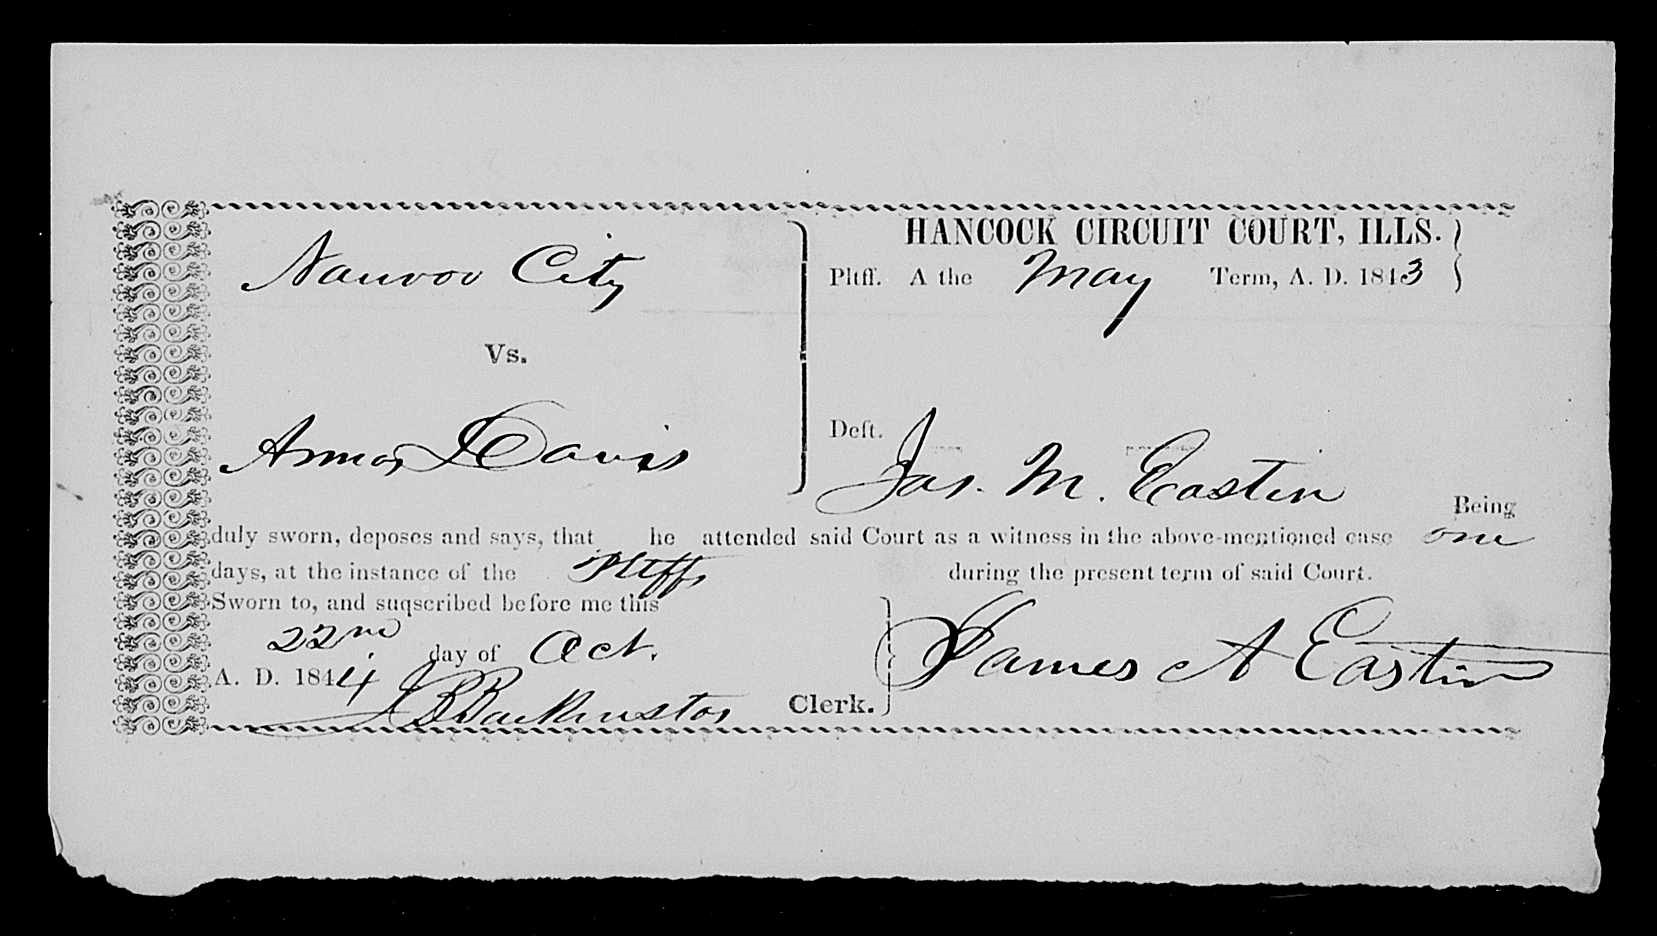 HANCOCK CIRCUIT COURT, ILLS.
Nauvoo City
Pltff. A the May Term, A. D. 1843
Vs.
Amos Davis
Deft.
Jas. M. Eastin Being
duly sworn, deposes and says, that he attended said Court as a witness in the above-mentioned case one
days, at the instance of the Pltff, during the present term of said Court.
Sworn to, and suqscribed before me this
22nd day of Oct.
A. D. 1844
J B Backenstos Clerk.
James A Eastin